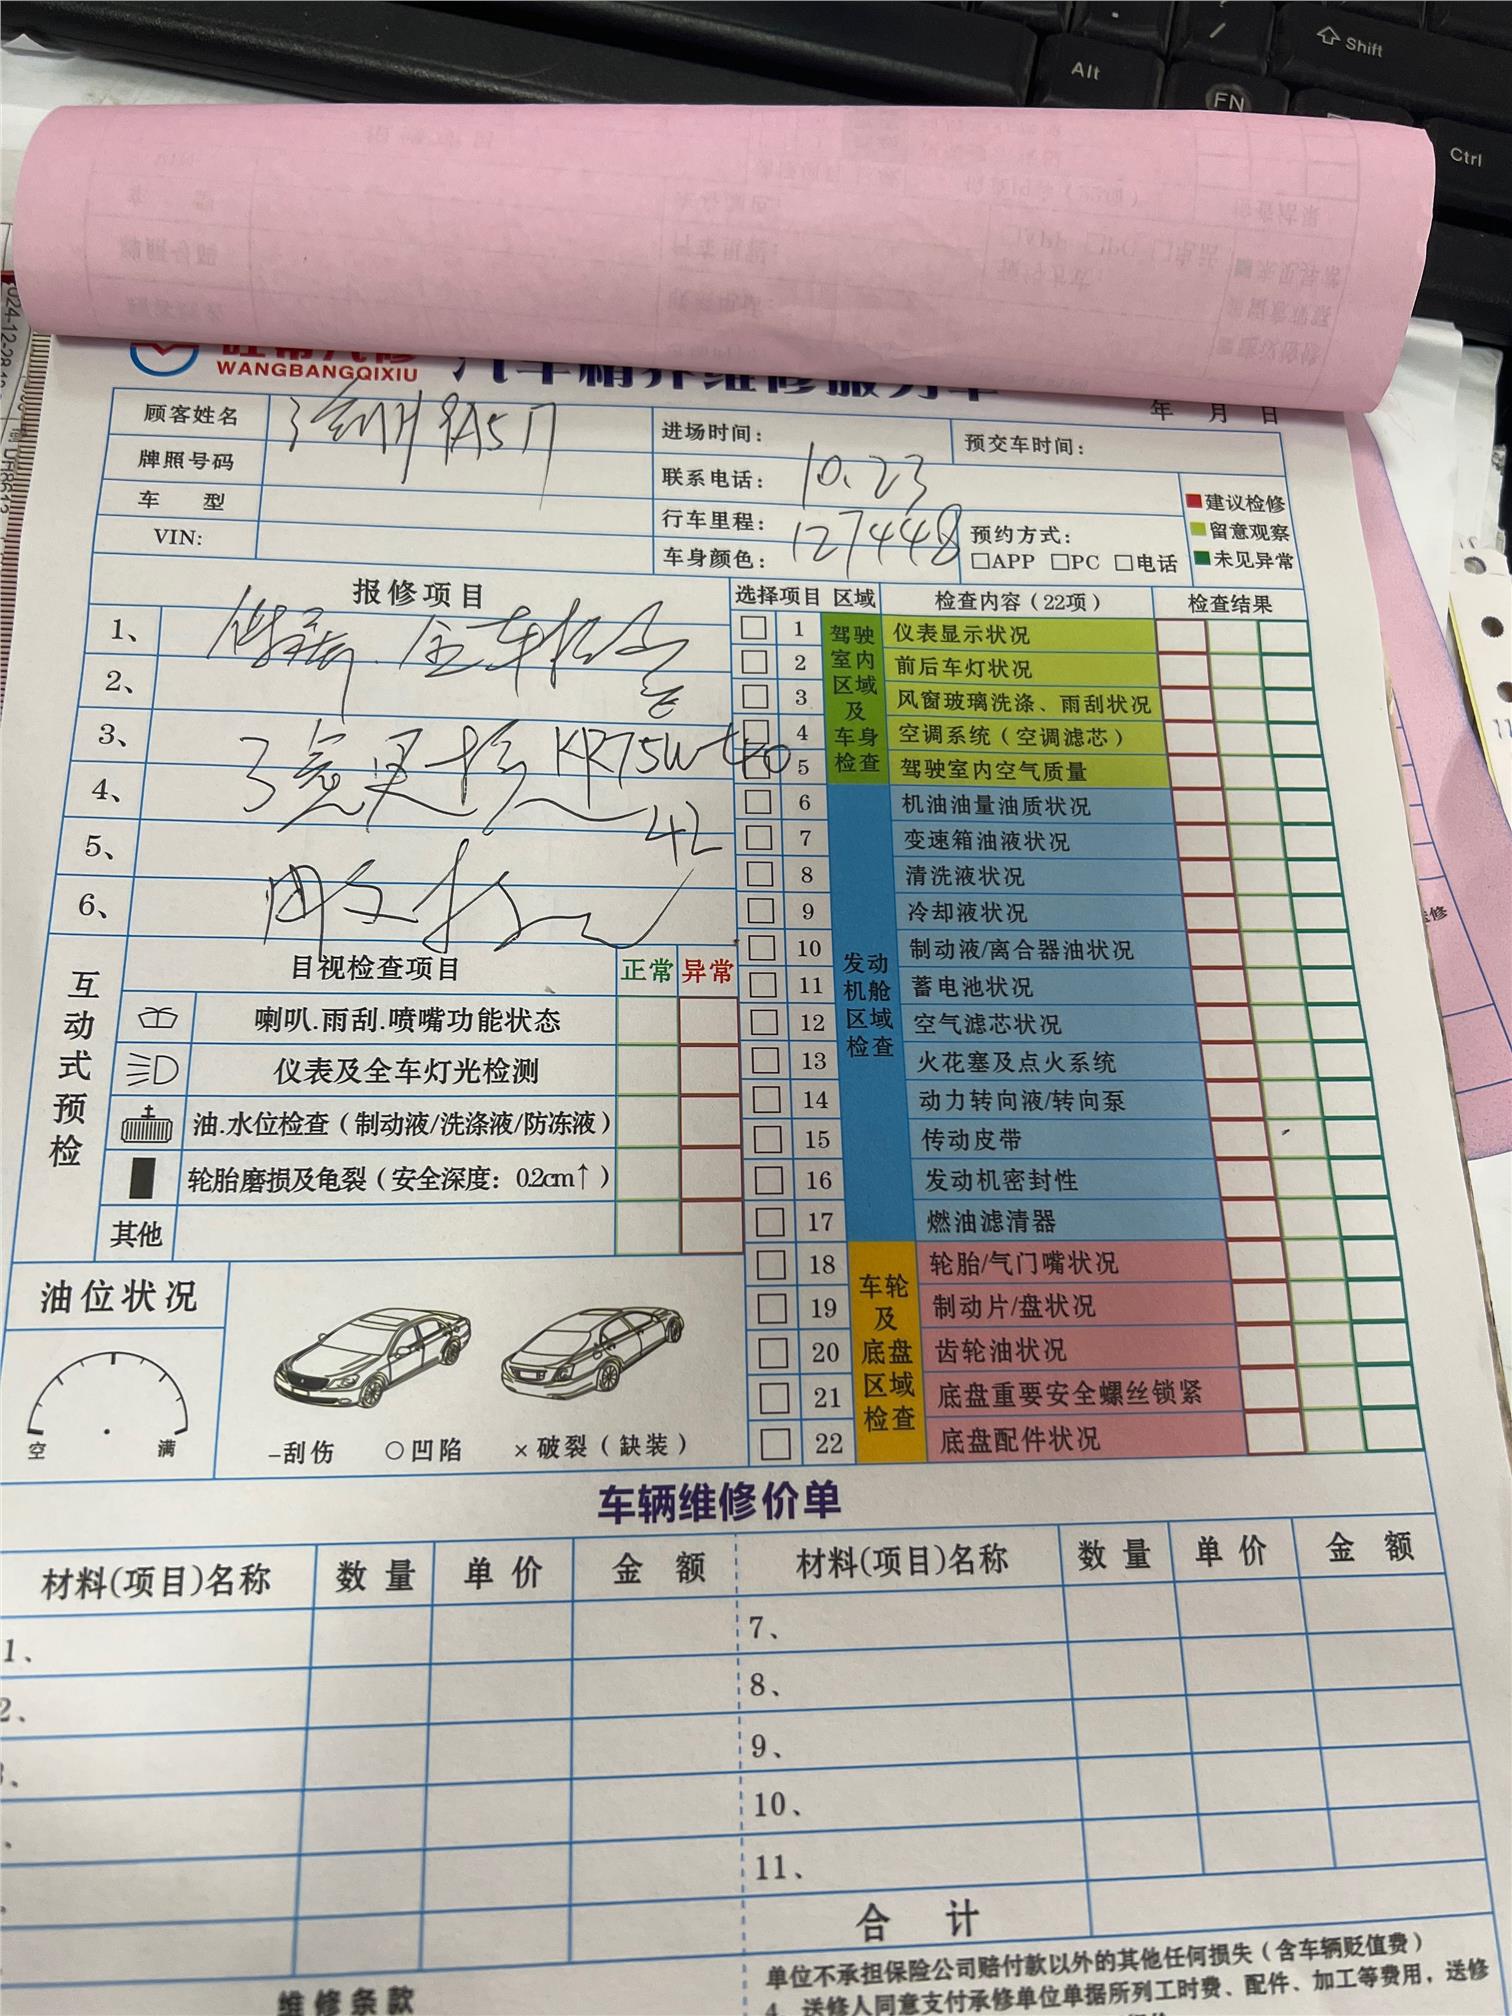 Shift
Alt
FN
Ctrl
WANGBANGQIXIU
汽车精养维修服务单
年 月 日
顾客姓名
进场时间：
预交车时间：
牌照号码
联系电话：
10.23
车 型
行车里程：
127448
预约方式：
VIN:
车身颜色：
□APP □PC □电话
建议检修
留意观察
未见异常
报修项目
1、
全车检查
2、
3、
更换 KR75W-40
4、
4L
5、
6、
选择 项目 区域 检查内容（22项） 检查结果
驾驶室内区域及车身检查
1 仪表显示状况
2 前后车灯状况
3 风窗玻璃洗涤、雨刮状况
4 空调系统（空调滤芯）
5 驾驶室内空气质量
发动机舱区域检查
6 机油油量油质状况
7 变速箱油液状况
8 清洗液状况
9 冷却液状况
10 制动液/离合器油状况
11 蓄电池状况
12 空气滤芯状况
13 火花塞及点火系统
14 动力转向液/转向泵
15 传动皮带
16 发动机密封性
17 燃油滤清器
车轮及底盘区域检查
18 轮胎/气门嘴状况
19 制动片/盘状况
20 齿轮油状况
21 底盘重要安全螺丝锁紧
22 底盘配件状况
互动式预检
目视检查项目 正常 异常
喇叭.雨刮.喷嘴功能状态
仪表及全车灯光检测
油.水位检查（制动液/洗涤液/防冻液）
轮胎磨损及龟裂（安全深度：0.2cm↑）
其他
油位状况
空 满
-刮伤 ○凹陷 ×破裂（缺装）
车辆维修价单
材料(项目)名称 数 量 单 价 金 额 材料(项目)名称 数 量 单 价 金 额
1、 7、
2、 8、
9、
10、
11、
合 计
维修条款
单位不承担保险公司赔付款以外的其他任何损失（含车辆贬值费）
4、送修人同意支付承修单位单据所列工时费、配件、加工等费用，送修